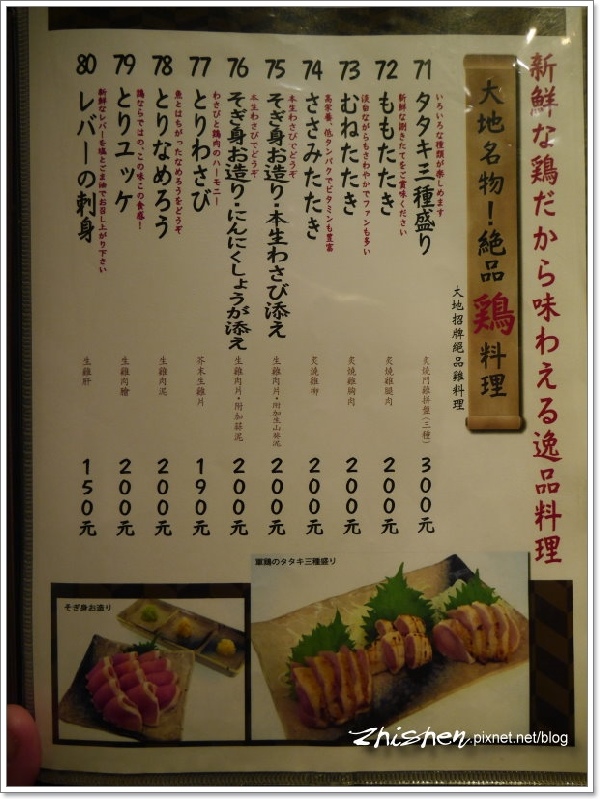 新鮮な鶏だから味わえる逸品料理
大地名物！絶品鶏料理
大地招牌絕品雞料理
71 タタキ三種盛り
いろいろな種類が楽しめます
炙燒鬥雞拼盤(三種)
300元
72 ももたたき
新鮮な朝さたてをご賞味ください
炙燒雞腿肉
200元
73 むねたたき
淡白ながらもさわやかでファンも多い
炙燒雞胸肉
200元
74 ささみたたき
高栄養、低タンパクでビタミンも豊富
炙燒雞柳
200元
75 そぎ身お造り・本生わさび添え
本生わさびでどうぞ
生雞肉片・附加生山葵泥
200元
76 そぎ身お造り・にんにくしょうが添え
本生わさびでどうぞ
生雞肉片・附加蒜泥
200元
77 とりわさび
わさびと鶏肉のハーモニー
芥末生雞片
190元
78 とりなめろう
魚とはちがったなめろうをどうぞ
生雞肉泥
200元
79 とりユッケ
鶏ならではの、この味この食感！
生雞肉膾
200元
80 レバーの刺身
新鮮なレバーを塩とごま油でお召し上がり下さい
生雞肝
150元
そぎ身お造り
軍鶏のタタキ三種盛り
zhishen.pixnet.net/blog